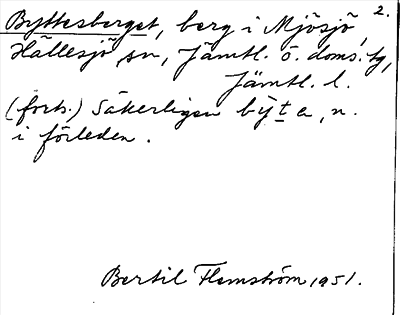 2.
Byttesberget, berg i Mjösjö,
Hällesjö sn, Jämtl. ö. doms. tg,
Jämtl. l.
(forts.) Säkerligen bȳta, n.
i förleden.
Bertil Flemström 1951.